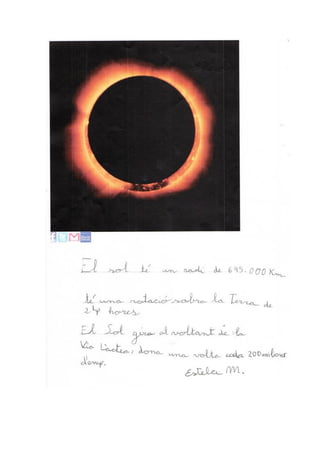 El sol té un radi de 695.000 Km
té una rotació sobra la Terra de
24 hores
El Sol gira al voltant de la
Via Làctea, dona una volta cada 200 milions
d'anys.
Estela M.